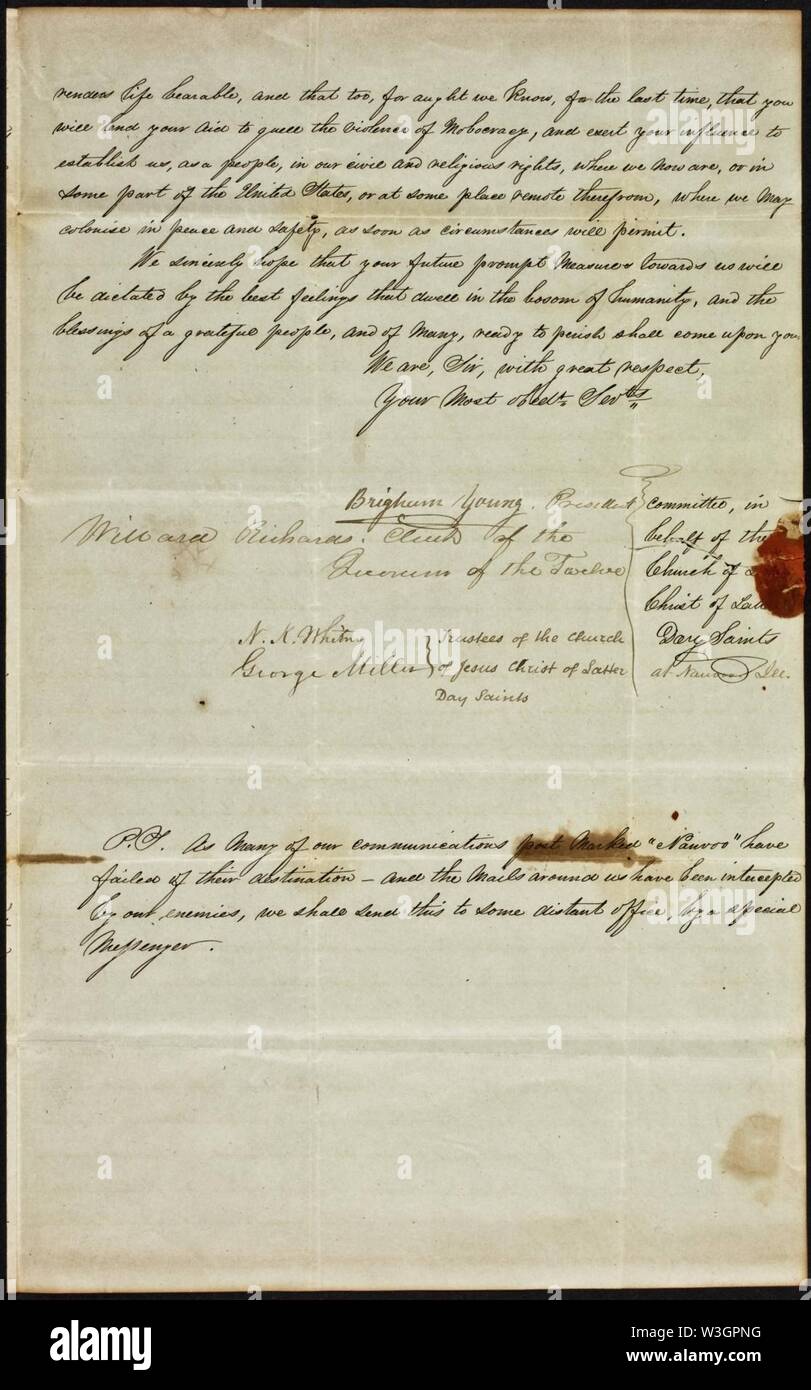 renders life bearable, and that too, for aught we know, for the last time, that you
will lend your aid to quell the violence of Mobocracy, and exert your influence to
establish us, as a people, in our civil and religious rights, where we now are, or in
some part of the United States, or at some place remote therefrom, where we may
colonise in peace and safety, as soon as circumstances will permit.
We sincerely hope that your future prompt measures towards us will
be dictated by the best feelings that dwell in the bosom of humanity, and the
blessings of a grateful people, and of many, ready to perish shall come upon you
We are, Sir, with great respect,
Your Most obedt. Servts
Brigham Young. President
Willard Richards. Clerk of the
Quorum of the Twelve
committee, in
behalf of the
Church of
Christ of Latter
Day Saints
at Nauvoo Ill.
N. K. Whitney
George Miller
Trustees of the Church
of Jesus Christ of Latter
Day Saints
P.S. As many of our communications post marked "Nauvoo" have
failed of their destination – and the mails around us have been intercepted
by our enemies, we shall send this to some distant office, by a special
Messenger.
alamy
Image ID: W3GPNG
www.alamy.com